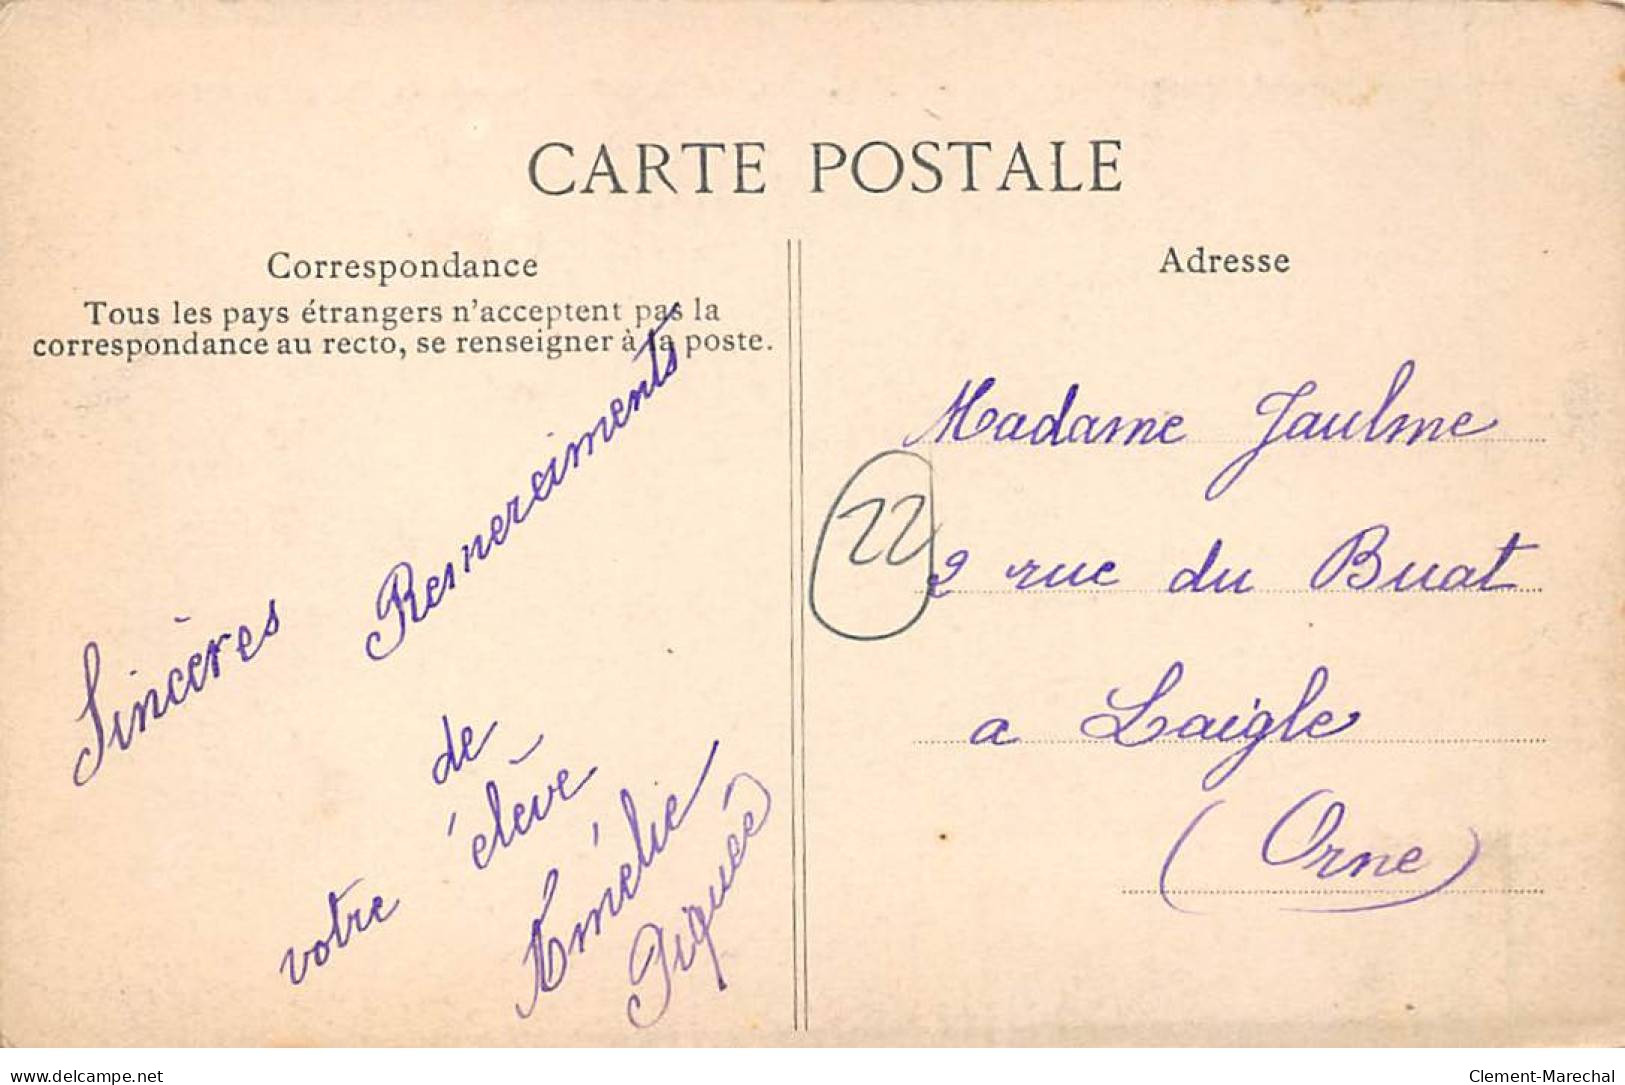 CARTE POSTALE
Correspondance
Tous les pays étrangers n'acceptent pas la
correspondance au recto, se renseigner à la poste.
Sincères Remerciments
de
votre élève
Amélie
Piquée
Adresse
Madame Jaulme
22
2 rue du Buat
a Laigle
(Orne)
www.delcampe.net
Clement-Marechal